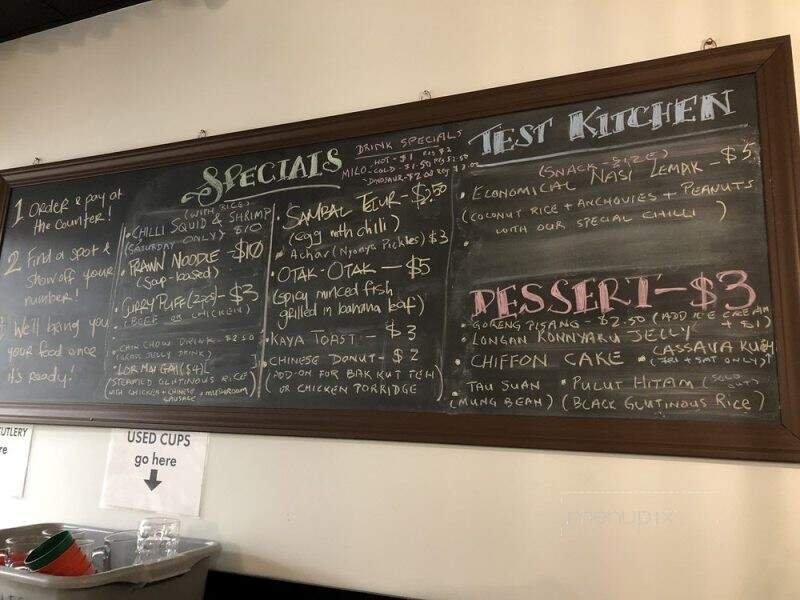 1 Order & pay at
the counter!
2 Find a spot &
show off your
number!
We'll bring you
your food once
it's ready!
SPECIALS
(WITH RICE)
• CHILLI SQUID & SHRIMP
(SATURDAY ONLY) $10
• PRAWN NOODLE - $10
(soup-based)
• CURRY PUFF (2pcs) - $3
(BEEF OR CHICKEN)
• CHIN CHOW DRINK - $2.50
(GRASS JELLY DRINK)
• LOR MAI GAI ($4)
(STEAMED GLUTINOUS RICE)
WITH CHICKEN + CHINESE + MUSHROOM
SAUSAGE
DRINK SPECIALS
MILO - HOT - $1 REG $2
- COLD - $1.50 REG $2.50
- DINOSAUR - $2.00 REG
• SAMBAL TELUR - $2.50
(egg with chilli)
• Achar (Nyonya Pickles) $3
• OTAK-OTAK - $5
(spicy minced fish
grilled in banana leaf)
• KAYA TOAST - $3
• CHINESE DONUT - $2
(ADD-ON FOR BAK KUT TEH
OR CHICKEN PORRIDGE)
TEST KITCHEN
(SNACK-SIZE)
• ECONOMICAL NASI LEMAK - $5
(COCONUT RICE + ANCHOVIES + PEANUTS
WITH OUR SPECIAL CHILLI)
•
DESSERT - $3
• GORENG PISANG - $2.50 (ADD ICE CREAM
+ $1)
• LONGAN KONNYAKU JELLY
• CHIFFON CAKE
• CASSAVA KUEH
(FRI + SAT ONLY)
• TAU SUAN
(MUNG BEAN)
• PULUT HITAM (SOLD
OUT)
(BLACK GLUTINOUS RICE)
CUTLERY
re
USED CUPS
go here
menupix